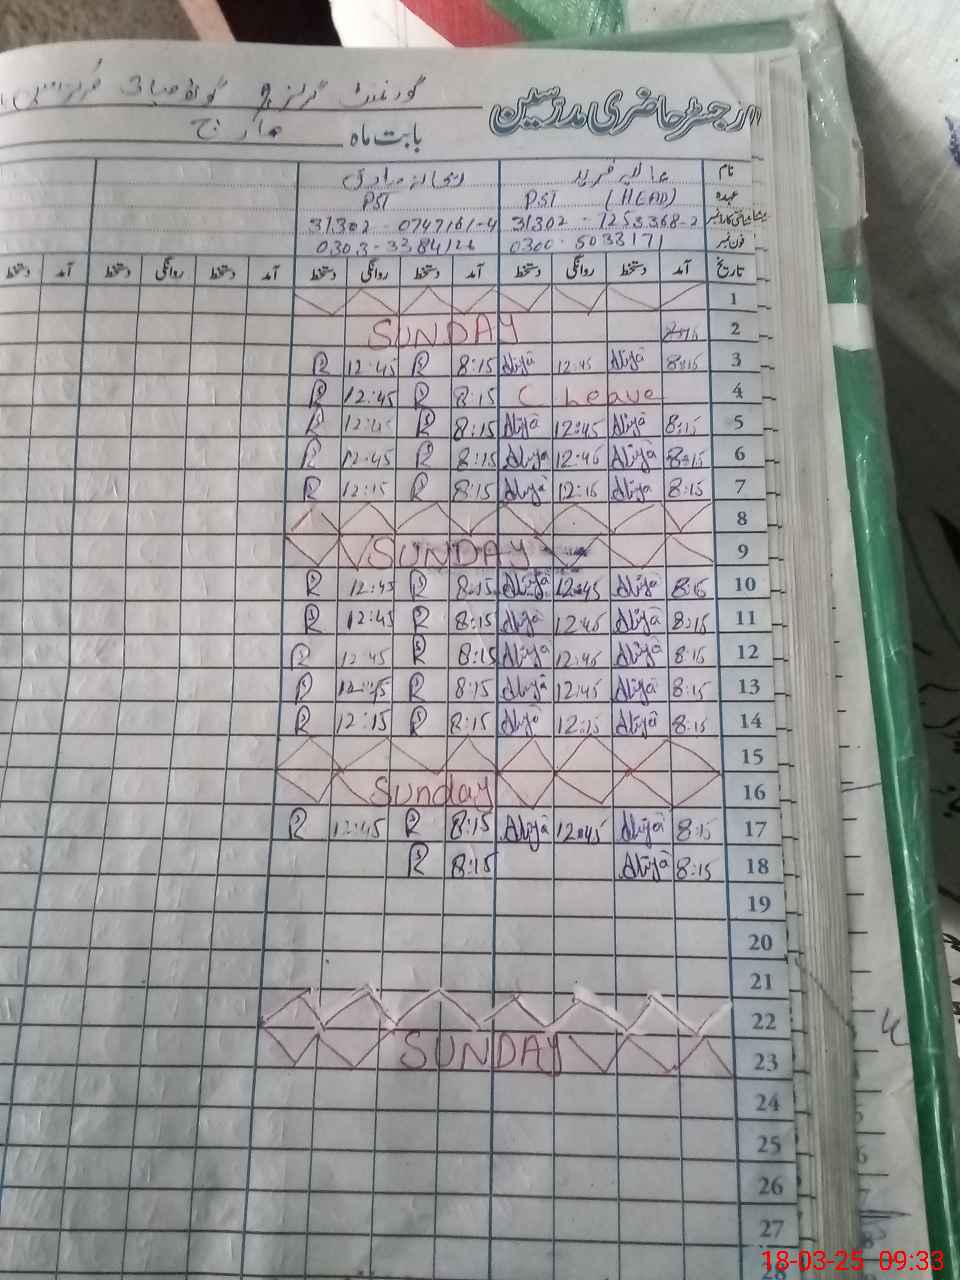 رجسٹر حاضری مدرسین
گورنمنٹ گرلز
بابت ماہ مارچ
نام عالیہ فرید
عہدہ PST (HEAD) PST
شناختی کارڈ نمبر 31302 - 1253368-2 31302 - 0747161-4
فون نمبر 0300-5033171 0303-3384126
تاریخ آمد دستخط روانگی دستخط آمد دستخط روانگی دستخط آمد دستخط روانگی دستخط آمد دستخط
1
2 SUNDAY
3 8:15 Aliya 12:45 Aliya 8:15 R 12:45 R
4 C Leave 8:15 R 12:45 R
5 8:15 Aliya 12:45 Aliya 8:15 R 12:45 R
6 8:15 Aliya 12:45 Aliya 8:15 R 12:45 R
7 8:15 Aliya 12:15 Aliya 8:15 R 12:15 R
8
9 SUNDAY
10 8:15 Aliya 12:45 Aliya 8:15 R 12:45 R
11 8:15 Aliya 12:45 Aliya 8:15 R 12:45 R
12 8:15 Aliya 12:45 Aliya 8:15 R 12:45 R
13 8:15 Aliya 12:45 Aliya 8:15 R 12:45 R
14 8:15 Aliya 12:15 Aliya 8:15 R 12:15 R
15
16 Sunday
17 8:15 Aliya 12:45 Aliya 8:15 R 12:45 R
18 8:15 Aliya 8:15 R
19
20
21
22
23 SUNDAY
24
25
26
27
28
18-03-25 09:33